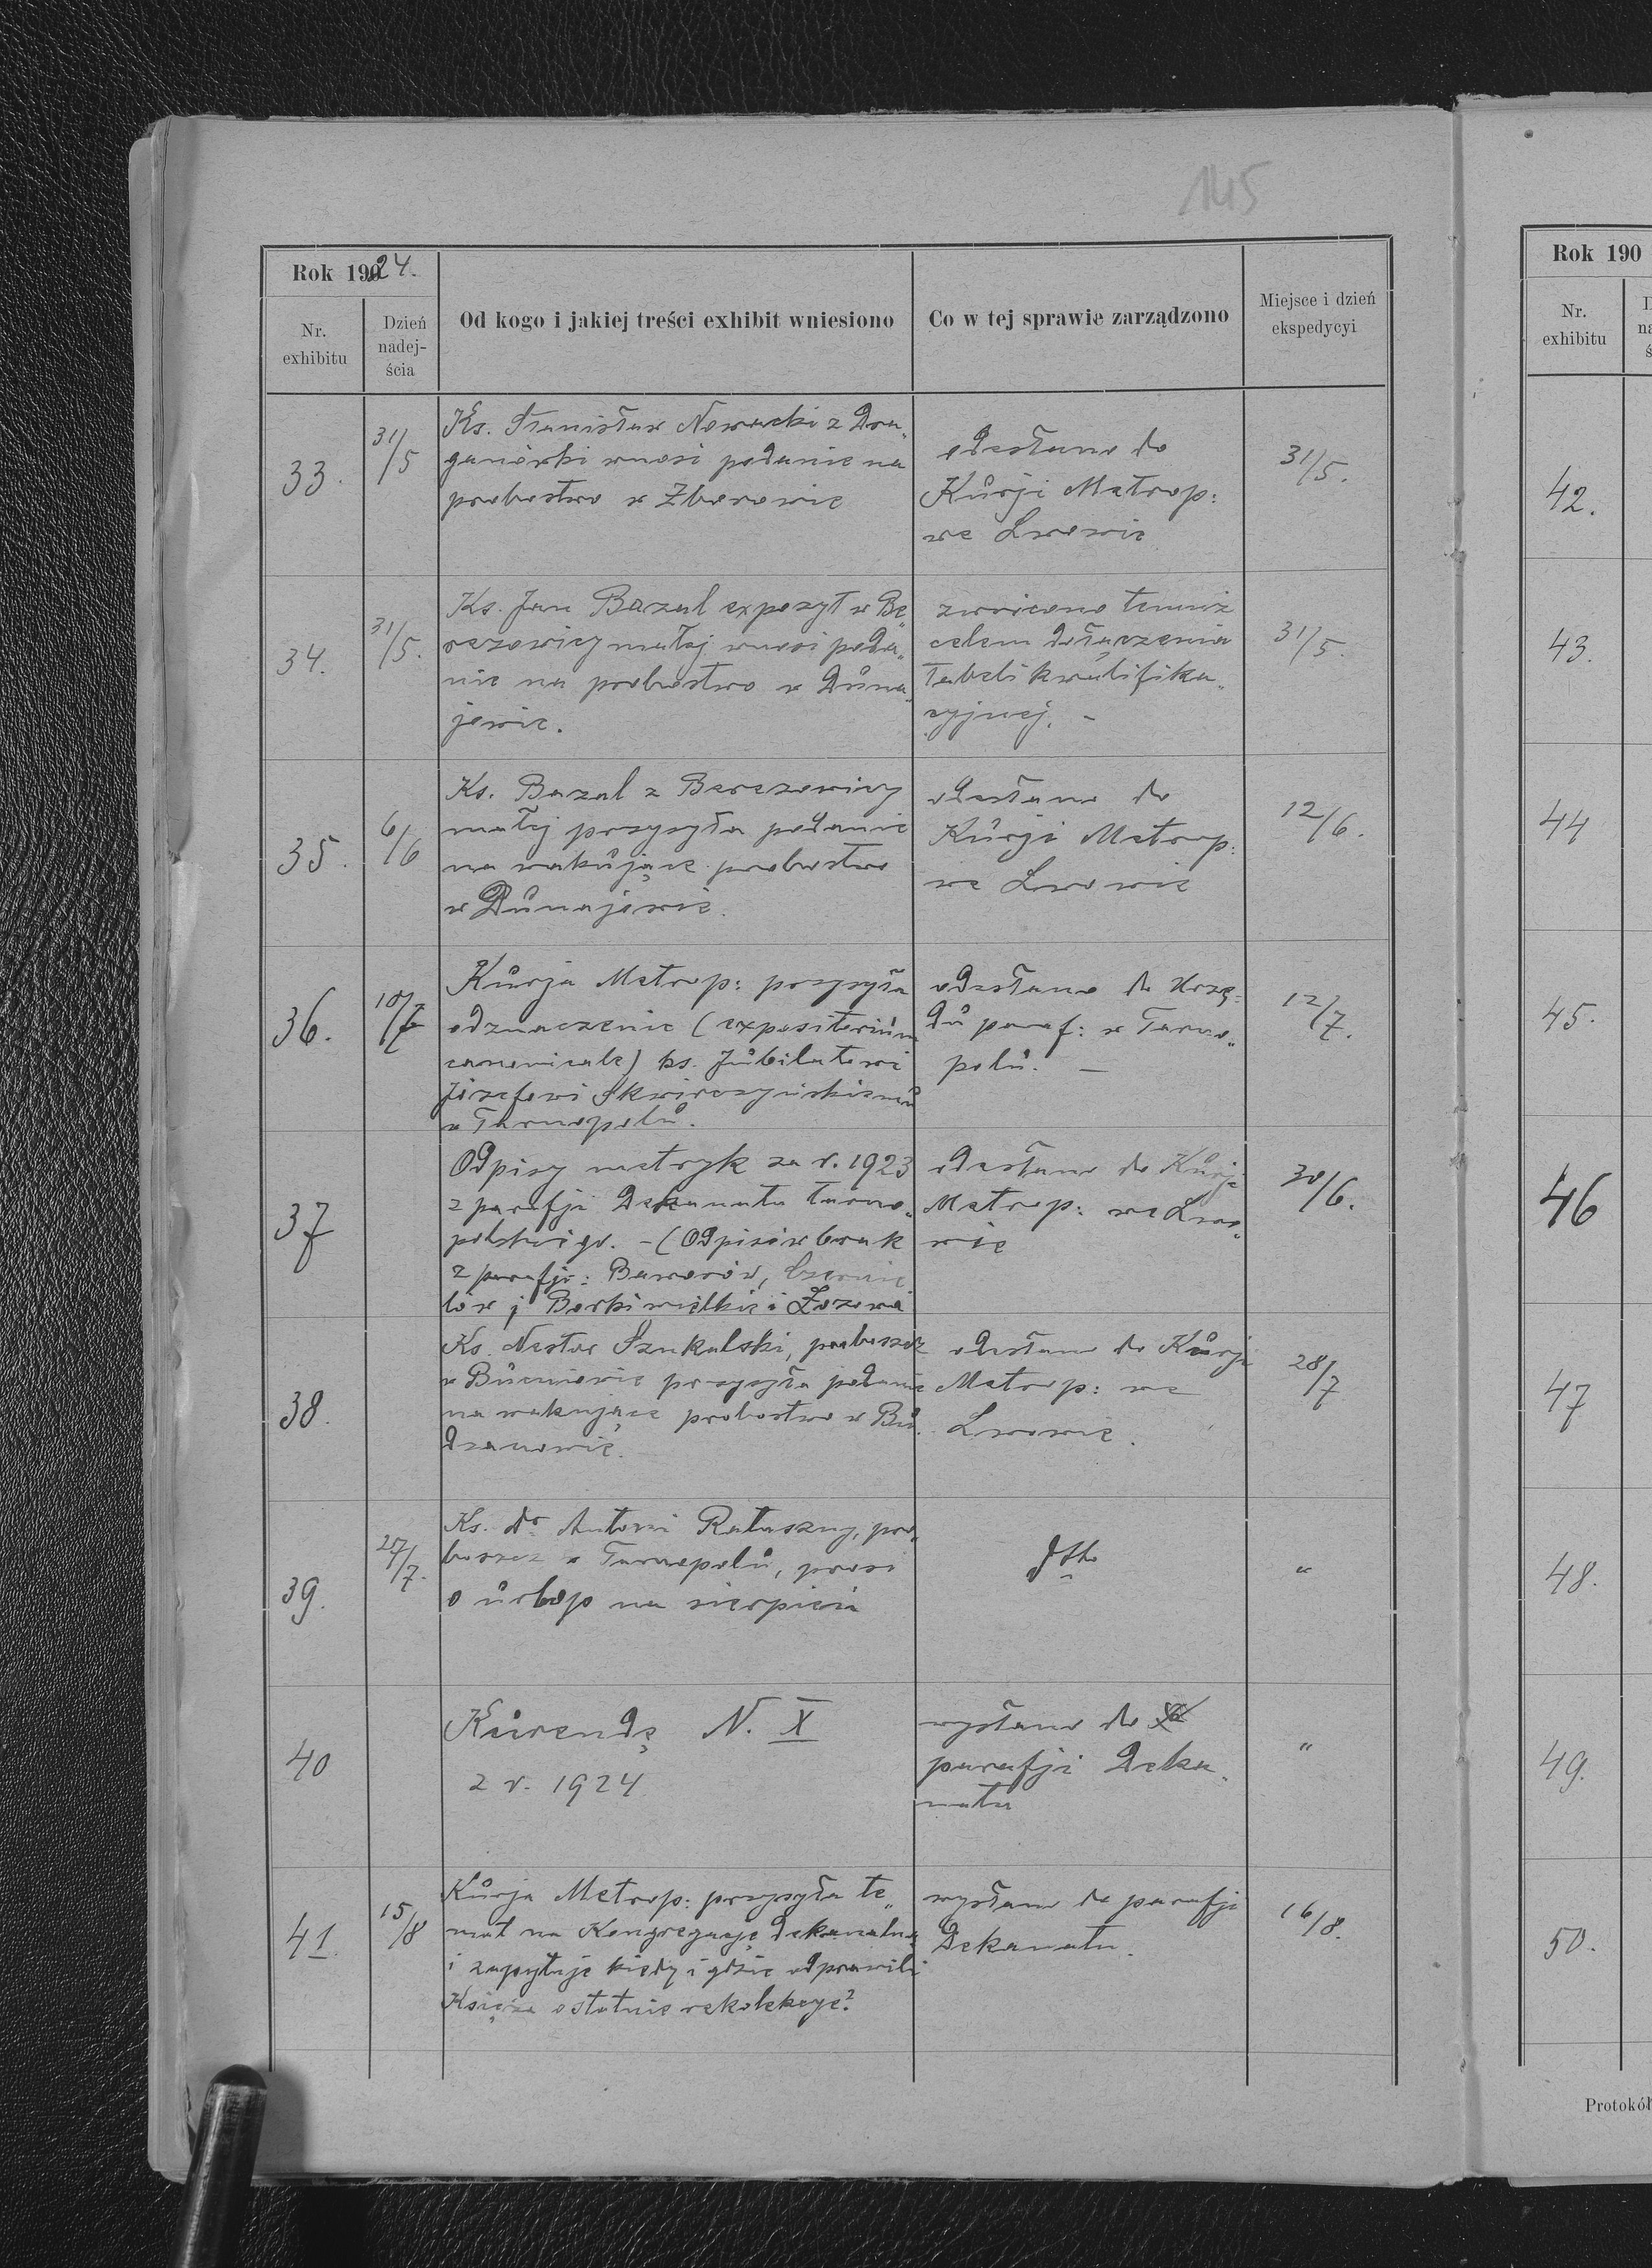 145
Rok 1924.
Nr. exhibitu
Dzień nadejścia
Od kogo i jakiej treści exhibit wniesiono
Co w tej sprawie zarządzono
Miejsce i dzień ekspedycyi
33.
31/5
Ks. Stanisław Nowacki z Dra„
ganówki wnosi podanie na
probostwo w Zborowie
odesłano do
Kurji Metrop:
we Lwowie
31/5.
34.
31/5.
Ks. Jan Bazal expozyt w Be„
rezowicy małej wnosi poda„
nie na probostwo w Duna„
jowie.
zwrócono temuż
celem dołączenia
tabeli kwalifika„
cyjnej. -
31/5.
35.
6/6
Ks. Bazal z Berezowicy
małej przysyła podanie
na wakujące probostwo
w Dunajowie.
odesłano do
Kurji Metrop.
we Lwowie
12/6.
36.
10/7
Kurja Metrop: przysyła
odznaczenie (expositorium
canonicale) ks. Jubilatowi
Józefowi Skwirczyńskiemu
w Tarnopolu.
odesłano do Urzę-
du paraf: w Tarno„
polu. —
12/7.
37
Odpisy metryk za r. 1923
z parafji Dekanatu tarno„
polskiego. - (Odpisów brak
z parafji: Baworów, Czernie
lów, Borki wielkie i Łozowa
odesłano do Kurji
Metrop: we Lwo„
wie
30/6.
38.
Ks. Nestor Szukalski, proboszcz
w Bucniowie przysyła podanie
na wakujące probostwo w Bu„
dzanowie.
odesłano do Kurji
Metrop: we
Lwowie.
28/7
39.
27/7.
Ks. dr Antoni Rataszny, pro„
boszcz w Tarnopolu, prosi
o urlop na sierpień
dtto
"
40
Kurendę N. X
z r. 1924
wysłano do
parafji Deka„
natu
"
41.
15/8
Kurja Metrop: przysyła te„
mat na Kongregację dekanalną
i zapytuje kiedy i gdzie odprawili
Księża ostatnie rekolekcye?
wysłano do parafji
Dekanatu.
16/8.
Rok 190
Nr. exhibitu
42.
43.
44
45.
46
47
48.
49.
50.
Protokół